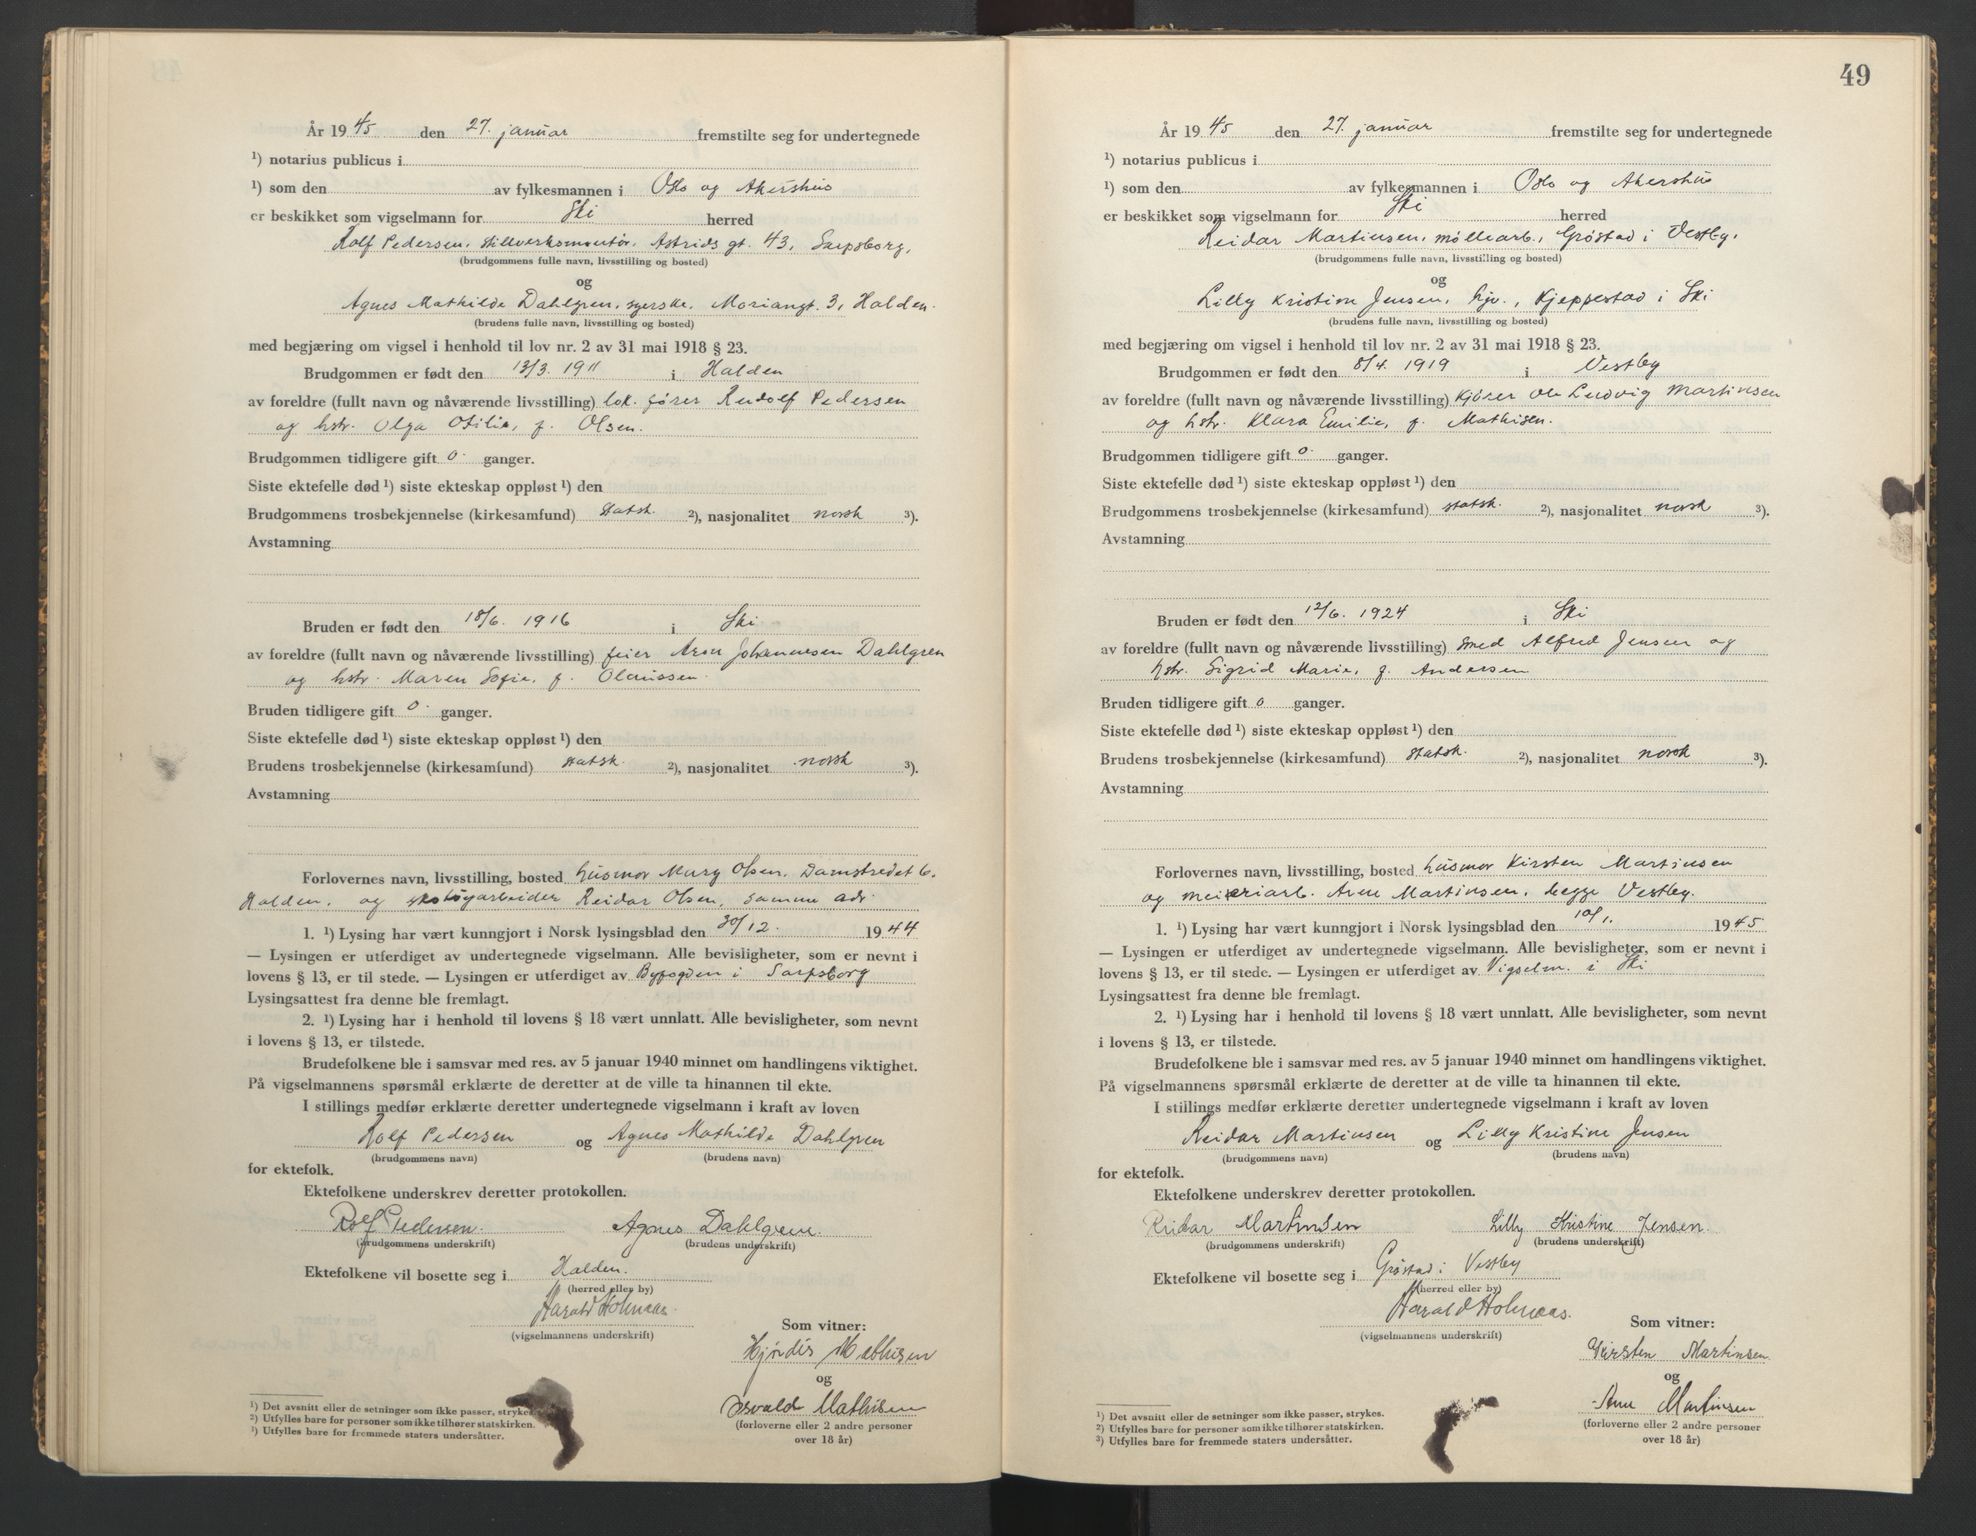 År 1945 den 27. januar fremstilte seg for undertegnede
¹) notarius publicus i
¹) som den av fylkesmannen i Oslo og Akershus
er beskikket som vigselmann for Ski herred
Rolf Pedersen, stillverksmontør, Astrids gt. 43, Sarpsborg,
(brudgommens fulle navn, livsstilling og bosted)
og
Agnes Mathilde Dahlgren, syerske, Mariangt. 3, Halden.
(brudens fulle navn, livsstilling og bosted)
med begjæring om vigsel i henhold til lov nr. 2 av 31 mai 1918 § 23.
Brudgommen er født den 13/3. 1911 i Halden
av foreldre (fullt navn og nåværende livsstilling) lok. fører Rudolf Pedersen
og hstr. Olga Otilie, f. Olsen.
Brudgommen tidligere gift 0. ganger.
Siste ektefelle død ¹) siste ekteskap oppløst ¹) den
Brudgommens trosbekjennelse (kirkesamfund) statsk. ²), nasjonalitet norsk ³).
Avstamning
Bruden er født den 18/6. 1916 i Ski
av foreldre (fullt navn og nåværende livsstilling) feier Aron Johannesen Dahlgren
og hstr. Maren Sofie, f. Olaussen.
Bruden tidligere gift 0. ganger.
Siste ektefelle død ¹) siste ekteskap oppløst ¹) den
Brudens trosbekjennelse (kirkesamfund) statsk. ²), nasjonalitet norsk ³).
Avstamning
Forlovernes navn, livsstilling, bosted husmor Mary Olsen, Damstredet 6.
Halden. og skotøyarbeider Reidar Olsen, samme adr.
1. ¹) Lysing har vært kunngjort i Norsk lysingsblad den 30/12. 1944
— Lysingen er utferdiget av undertegnede vigselmann. Alle bevisligheter, som er nevnt i
lovens § 13, er til stede. — Lysingen er utferdiget av Byfogden i Sarpsborg
Lysingsattest fra denne ble fremlagt.
2. ¹) Lysing har i henhold til lovens § 18 vært unnlatt. Alle bevisligheter, som nevnt
i lovens § 13, er tilstede.
Brudefolkene ble i samsvar med res. av 5 januar 1940 minnet om handlingens viktighet.
På vigselmannens spørsmål erklærte de deretter at de ville ta hinannen til ekte.
I stillings medfør erklærte deretter undertegnede vigselmann i kraft av loven
Rolf Pedersen og Agnes Mathilde Dahlgren
(brudgommens navn) (brudens navn)
for ektefolk.
Ektefolkene underskrev deretter protokollen.
Rolf Pedersen. Agnes Dahlgren.
(brudgommens underskrift) (brudens underskrift)
Ektefolkene vil bosette seg i Halden.
(herred eller by)
Harald Holmaas.
(vigselmannens underskrift)
Som vitner:
Hjørdis Mathisen
og
Osvald Mathisen
(forloverne eller 2 andre personer
over 18 år)
¹) Det avsnitt eller de setninger som ikke passer, strykes.
²) Utfylles bare for personer som ikke tilhører statskirken.
³) Utfylles bare for fremmede staters undersåtter.
49
År 1945 den 27. januar fremstilte seg for undertegnede
¹) notarius publicus i
¹) som den av fylkesmannen i Oslo og Akershus
er beskikket som vigselmann for Ski herred
Reidar Martinsen, møllearb., Grøstad i Vestby.
(brudgommens fulle navn, livsstilling og bosted)
og
Lilly Kristine Jensen, hjv., Kjeppestad i Ski
(brudens fulle navn, livsstilling og bosted)
med begjæring om vigsel i henhold til lov nr. 2 av 31 mai 1918 § 23.
Brudgommen er født den 8/4. 1919 i Vestby
av foreldre (fullt navn og nåværende livsstilling) kjører Ole Ludvig Martinsen
og hstr. Klara Emilie, f. Mathisen.
Brudgommen tidligere gift 0. ganger.
Siste ektefelle død ¹) siste ekteskap oppløst ¹) den
Brudgommens trosbekjennelse (kirkesamfund) statsk. ²), nasjonalitet norsk ³).
Avstamning
Bruden er født den 12/6. 1924 i Ski
av foreldre (fullt navn og nåværende livsstilling) smed Alfred Jensen og
hstr. Sigrid Marie, f. Andersen
Bruden tidligere gift 0 ganger.
Siste ektefelle død ¹) siste ekteskap oppløst ¹) den
Brudens trosbekjennelse (kirkesamfund) statsk. ²), nasjonalitet norsk ³).
Avstamning
Forlovernes navn, livsstilling, bosted husmor Kirsten Martinsen
og meieriarb. Arne Martinsen, begge Vestby.
1. ¹) Lysing har vært kunngjort i Norsk lysingsblad den 10/1. 1945.
— Lysingen er utferdiget av undertegnede vigselmann. Alle bevisligheter, som er nevnt i
lovens § 13, er til stede. — Lysingen er utferdiget av Vigselm. i Ski
Lysingsattest fra denne ble fremlagt.
2. ¹) Lysing har i henhold til lovens § 18 vært unnlatt. Alle bevisligheter, som nevnt
i lovens § 13, er tilstede.
Brudefolkene ble i samsvar med res. av 5 januar 1940 minnet om handlingens viktighet.
På vigselmannens spørsmål erklærte de deretter at de ville ta hinannen til ekte.
I stillings medfør erklærte deretter undertegnede vigselmann i kraft av loven
Reidar Martinsen og Lilly Kristine Jensen
(brudgommens navn) (brudens navn)
for ektefolk.
Ektefolkene underskrev deretter protokollen.
Reidar Martinsen Lilly Kristine Jensen.
(brudgommens underskrift) (brudens underskrift)
Ektefolkene vil bosette seg i Grøstad i Vestby
(herred eller by)
Harald Holmaas.
(vigselmannens underskrift)
Som vitner:
Kirsten Martinsen.
og
Arne Martinsen
(forloverne eller 2 andre personer
over 18 år)
¹) Det avsnitt eller de setninger som ikke passer, strykes.
²) Utfylles bare for personer som ikke tilhører statskirken.
³) Utfylles bare for fremmede staters undersåtter.